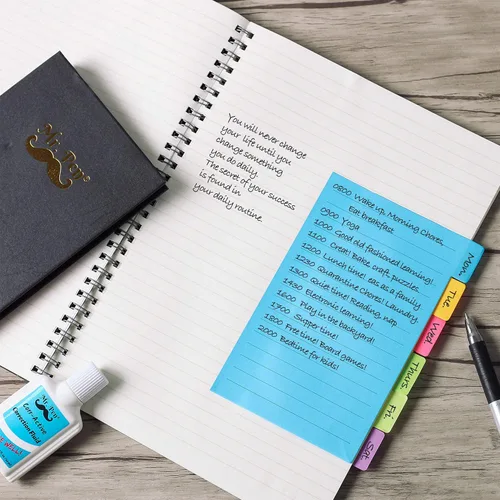 Mr. Pen®
You will never change
your life until you
change something
you do daily.
The secret of your success
is found in
your daily routine.
0800 Wake up, Morning Chores,
Eat breakfast
0900 Yoga
1000 Good old fashioned learning!
1100 Creat! Bake, craft, puzzles
1200 Lunch time! eat as a family
1230 Quarantine Chores! Laundry.
1300 Quiet time! Reading, nap
1430 Electronic learning!
1600 Play in the backyard!
1700 Supper time!
1800 Free time! Board games!
2000 Bedtime for kids!
Mon.
Tue.
Wed.
Thurs.
Fr.
Sat.
Mr. Pen
Corr-Active
Correction Fluid